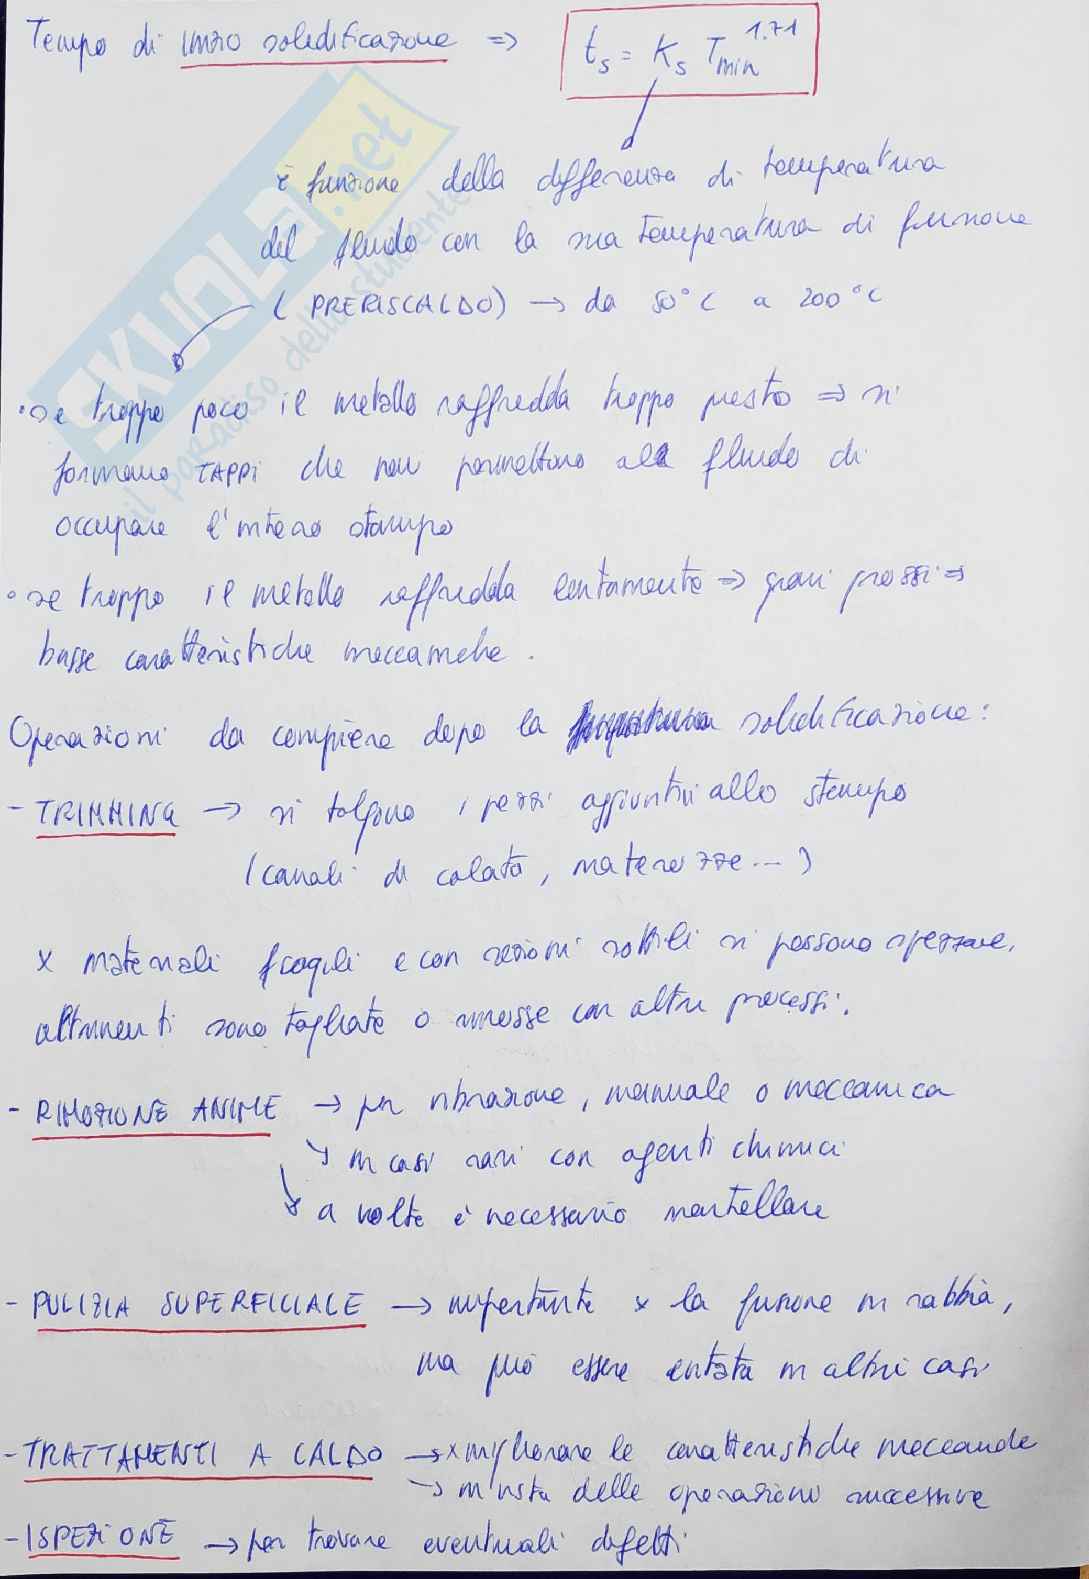 Tempo di inizio solidificazione ⇒ t_s = K_s T_min^1.71
è funzione della differenza di temperatura
del fluido con la sua temperatura di fusione
(PRERISCALDO) → da 50°C a 200°C
• se troppo poco il metallo raffredda troppo presto ⇒ si
formano TAPPI che non permettono al fluido di
occupare l'intero stampo
• se troppo il metallo raffredda lentamente ⇒ grani grossi ⇒
basse caratteristiche meccaniche.
Operazioni da compiere dopo la solidificazione:
- TRIMMING → si tolgono i pezzi aggiuntivi allo stampo
(canali di colata, materozze...)
x materiali fragili e con sezioni sottili si possono spezzare,
altrimenti sono tagliate o rimosse con altri processi.
- RIMOZIONE ANIME → per vibrazione, manuale o meccanica
↘ in casi rari con agenti chimici
↘ a volte è necessario martellare
- PULIZIA SUPERFICIALE → importante x la fusione in sabbia,
ma può essere evitata in altri casi
- TRATTAMENTI A CALDO → x migliorare le caratteristiche meccaniche
→ in vista delle operazioni successive
- ISPEZIONE → per trovare eventuali difetti
SKUOLA.net
il paradiso dello studente